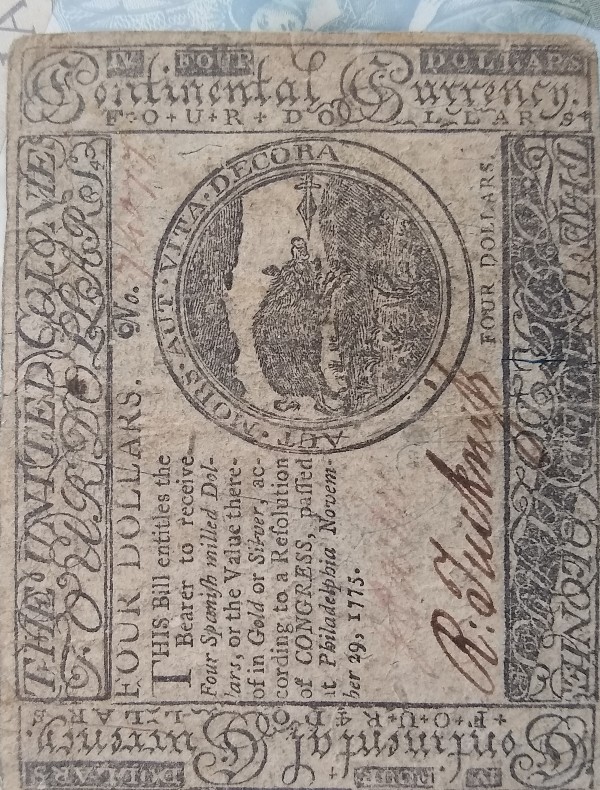 IV FOUR DOLLARS
Continental Currency.
F+O+U+R+DOLLARS+
THE UNITED COLONIES
FOUR DOLLARS
FOUR DOLLARS. No.
AUT·MORS·AUT·VITA·DECORA
THIS Bill entitles the
Bearer to receive
Four Spaniſh milled Dol-
lars, or the Value there-
of in Gold or Silver, ac-
cording to a Reſolution
of CONGRESS, paſſed
at Philadelphia Novem-
ber 29, 1775.
FOUR DOLLARS.
R. Tuckniſs
THE UNITED COLONIES
Continental Currency.
F+O+U+R+DOLLARS
IV FOUR DOLLARS